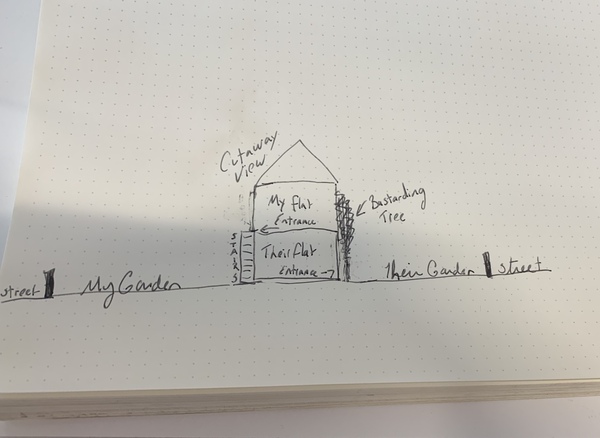 Cutaway
View
My flat
Entrance
Bastarding
Tree
STAIRS
Their flat
Entrance
street
My Garden
Their Garden
street